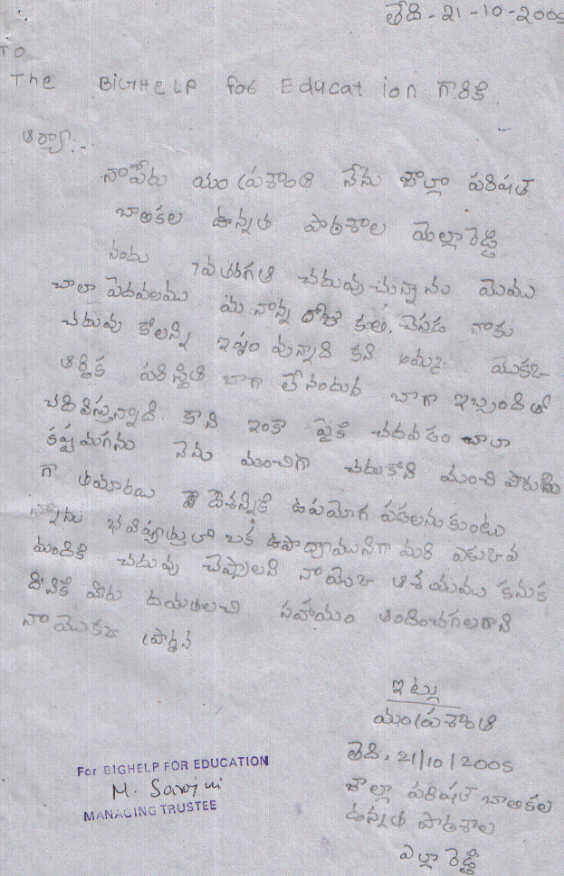 తేది - 21 - 10 - 2005
TO
The BIGHELP for Education గారికి
ఆర్యా...
నాపేరు యం ప్రశాంతి నేను జిల్లా పరిషత్
బాలికల ఉన్నత పాఠశాల యెల్లారెడ్డి
నందు 7వతరగతి చదువుచున్నాను మేము
చాలా పేదవలము మా నాన్న రోజు కూలి. నాకు
చదువు కోలన్ని ఇష్టం వున్నాది కని అమ్మ యొక్క
ఆర్థిక పరిస్థితి బాగా లేనందున బాగా ఇబ్బందితో
చదివిస్తున్నాది. కాని ఇంకా పైకి చదవడం చాలా
కష్టమగును నేను మంచిగా చదుకోని మంచి
గా దేశన్నికి ఉపయోగ పడలనుకుంటు
న్నాను భవిష్యత్తులో ఒక ఉపాధ్యాయునిగా మరి
మందికి చదువు చెప్పాలని నాయొక్క ఆశయము కనుక
దీనికి మీరు దయతలచి సహాయం అందించగలరాని
నా యొకక ప్రార్థన
ఇట్లు
యం ప్రశాంతి
తేది. 21/10/2005
జిల్లా పరిషత్ బాలికల
ఉన్నత పాఠశాల
ఎల్లా రెడ్డి
For BIGHELP FOR EDUCATION
M. Sarojini
MANAGING TRUSTEE